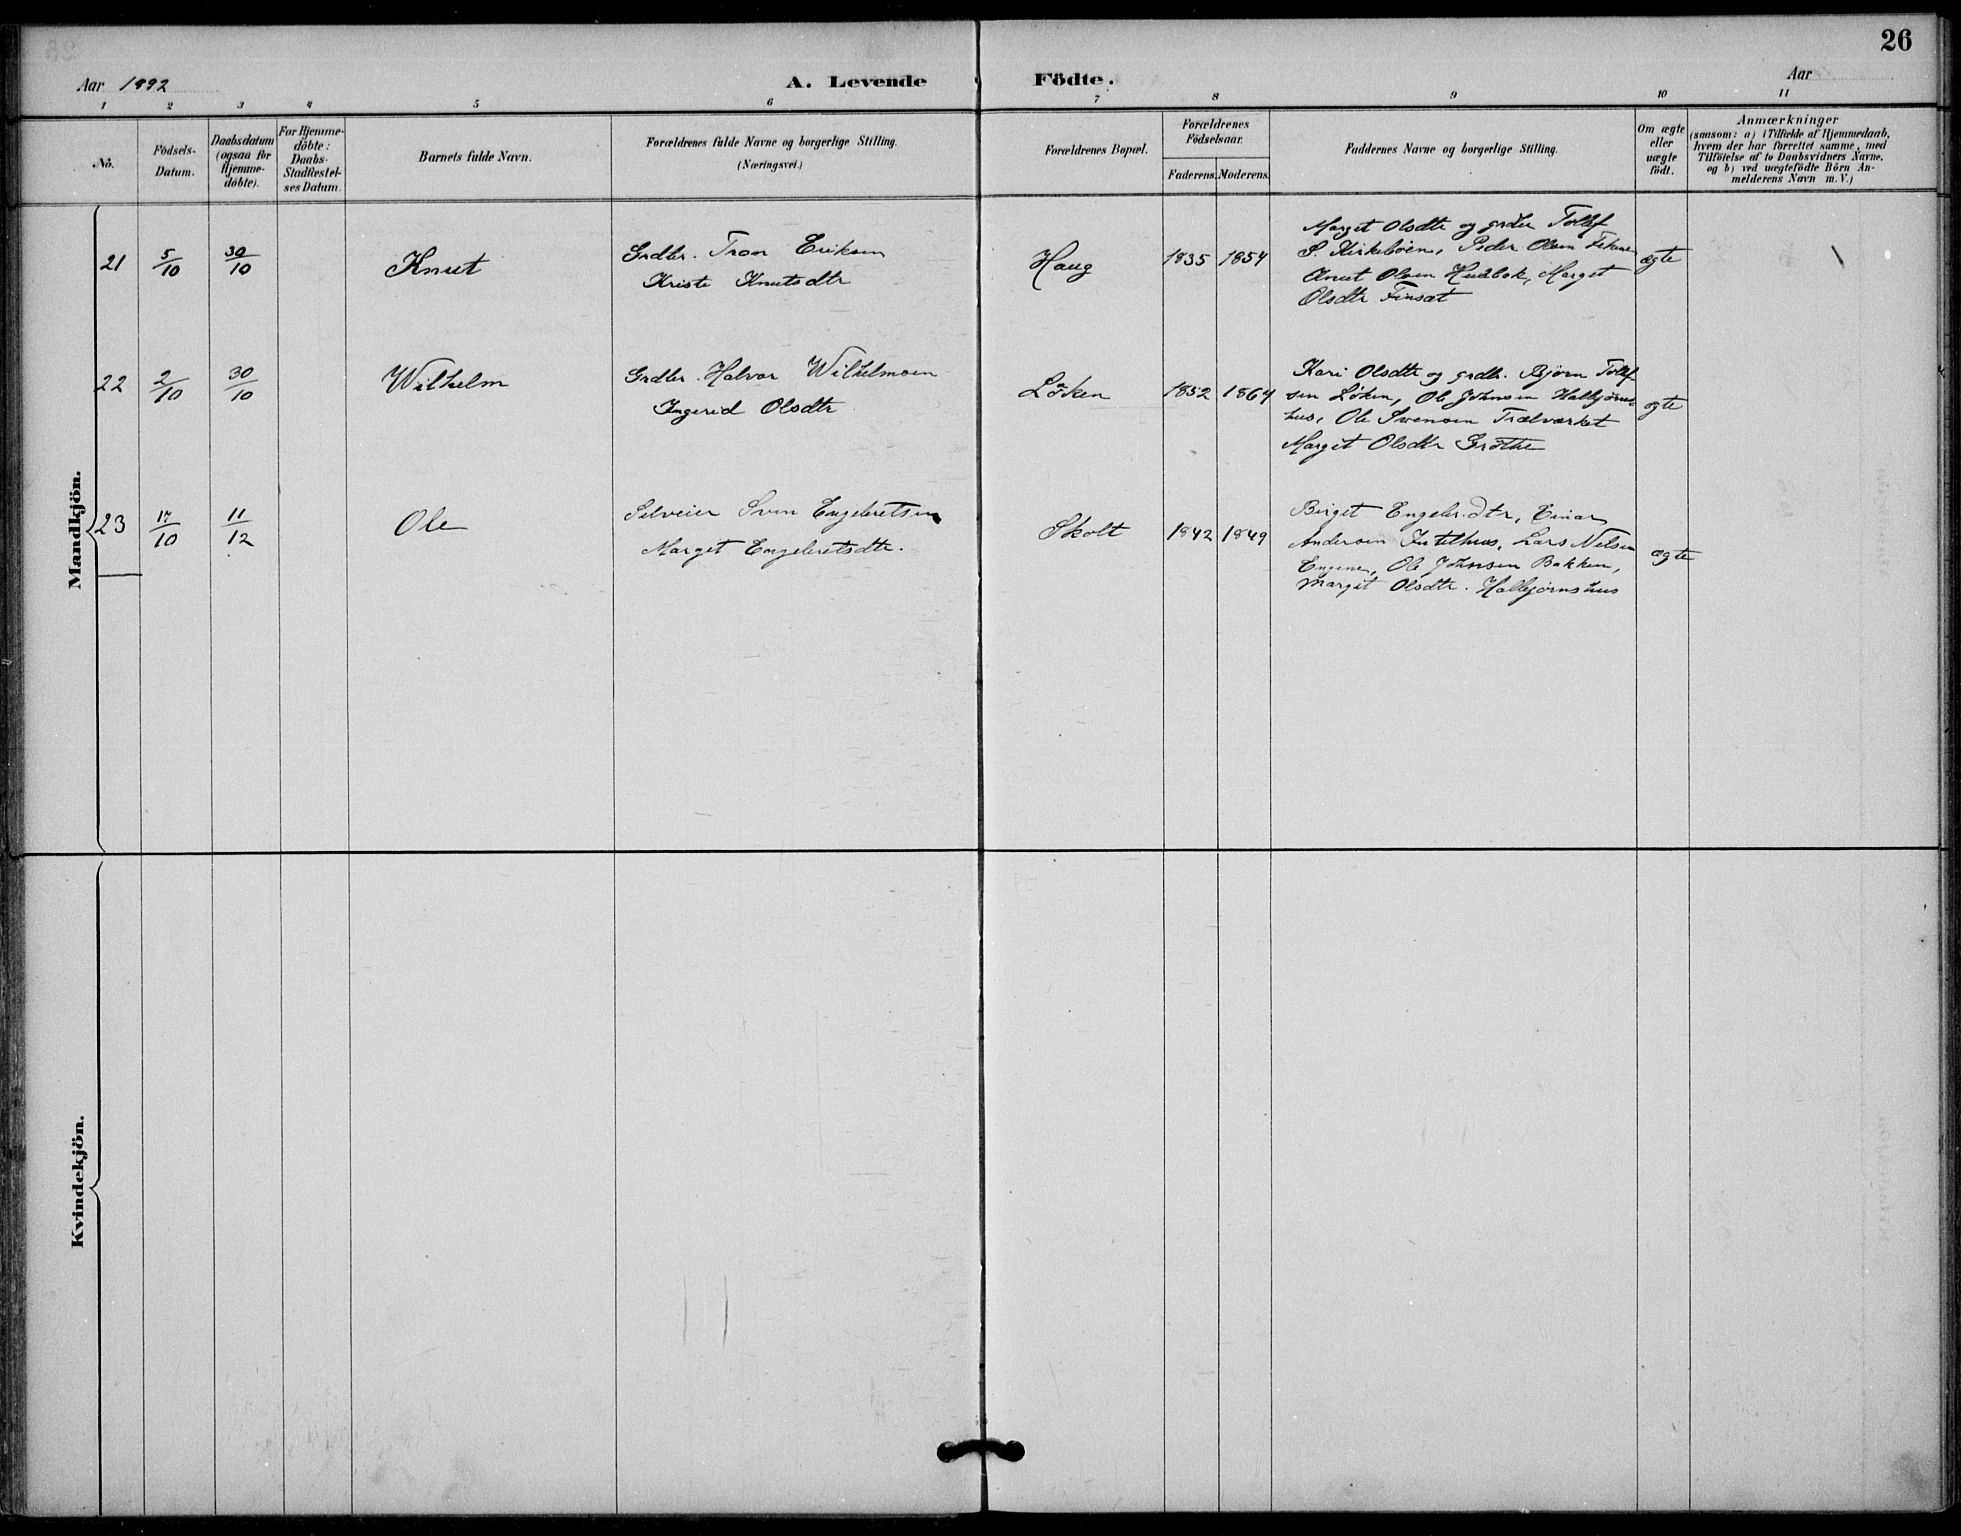 26
Aar 1892 A. Levende Födte. Aar
1 2 3 4 5 6 7 8 9 10 11
No. Födsels-Datum. Daabsdatum (ogsaa for Hjemme-döbte). For Hjemme-döbte: Daabs-Stadfæstel-ses Datum. Barnets fulde Navn. Forældrenes fulde Navne og borgerlige Stilling. (Næringsvei.) Forældrenes Bopæl. Forældrenes Födselsaar. Faderens. Moderens. Faddernes Navne og borgerlige Stilling. Om ægte eller uægte födt. Anmærkninger (saasom: a) i Tilfælde af Hjemmedaab, hvem der har forrettet samme, med Tilföielse af to Daabsvidners Navne. og b) ved uægtefödte Börn An-melderens Navn m. V.)
Mandkjön.
21 5/10 30/10 Knut Grdbr. Tron Eriksen Haug 1835 1854 Marget Olsdtr og grdbr Tollef
Kriste Knutsdtr S. Kirkebøen, Peder Olsen ægte
Knut Olsen Marget
Olsdtr Finset
22 2/10 30/10 Wilhelm Grdbr. Halvor Wilhelmsen Løken 1852 1864 Kari Olsdtr og grdbr. Bjørn Tollef
Ingerid Olsdtr sen Løken, Ole Johnsen Halbjørns- ægte
hus, Ole Svensen Trælværket
Marget Olsdtr Grøthe
23 17/10 11/12 Ole Selveier Sven Engebretsen Skolt 1842 1849 Birget Engebr.dtr, Einar
Marget Engebretsdtr. Andersen Lars Nilsen ægte
Engene, Ole Johnsen Bakken,
Margit Olsdtr. Halbjørnshus
Kvindekjön.